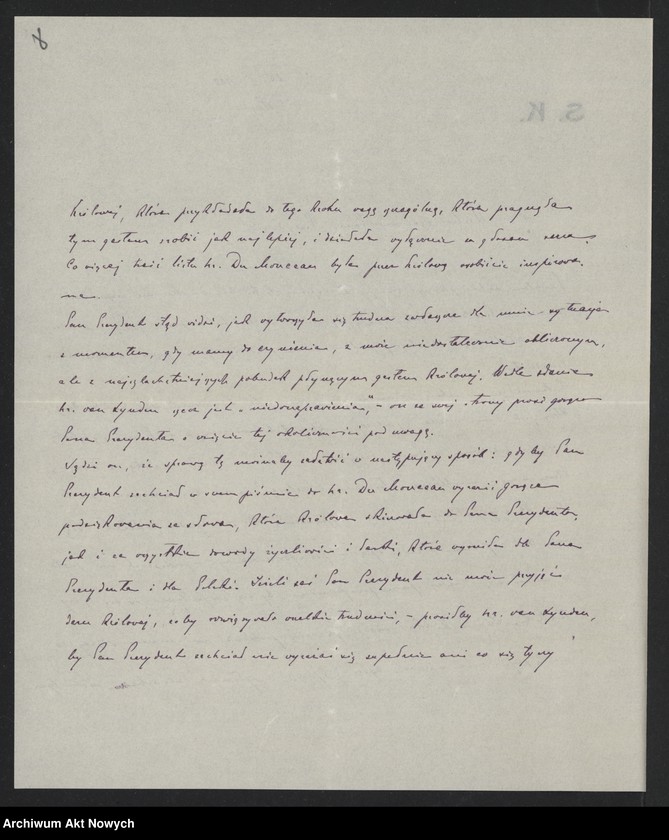 8
S. K.
Królowej, która przykładała do tego kroku wagę szczególną, która pragnęła
tym gestem zrobić jak najlepiej, i działała wyłącznie za głosem serca.
Co więcej treść listu hr. Du Monceau była przez Królową osobiście inspirowa-
na.
Pan Prezydent stąd widzi, jak wytworzyła się trudna zwłaszcza dla mnie sytuacja
z momentem, gdy mamy do czynienia, z może niedostatecznie obliczonym,
ale z najszlachetniejszych pobudek płynącym gestem Królowej. Wedle zdania
hr. van Lynden rzecz jest „nie do naprawienia", – on ze swej strony prosi gorąco
Pana Prezydenta o wzięcie tej okoliczności pod uwagę.
Sądzi on, że sprawę tę możnaby załatwić w następujący sposób: gdyby Pan
Prezydent zechciał w swem piśmie do hr. Du Monceau wyrazić gorące
podziękowania za słowa, które Królowa skierowała do Pana Prezydenta,
jak i za wszystkie dowody życzliwości i łaski, które wyraziła dla Pana
Prezydenta i dla Polski. Jeżeli zaś Pan Prezydent nie może przyjąć
daru Królowej, coby rozwiązywało wszelkie trudności, – prosiłby hr. van Lynden,
by Pan Prezydent zechciał nie wyrażać się zupełnie ani co się tyczy
Archiwum Akt Nowych